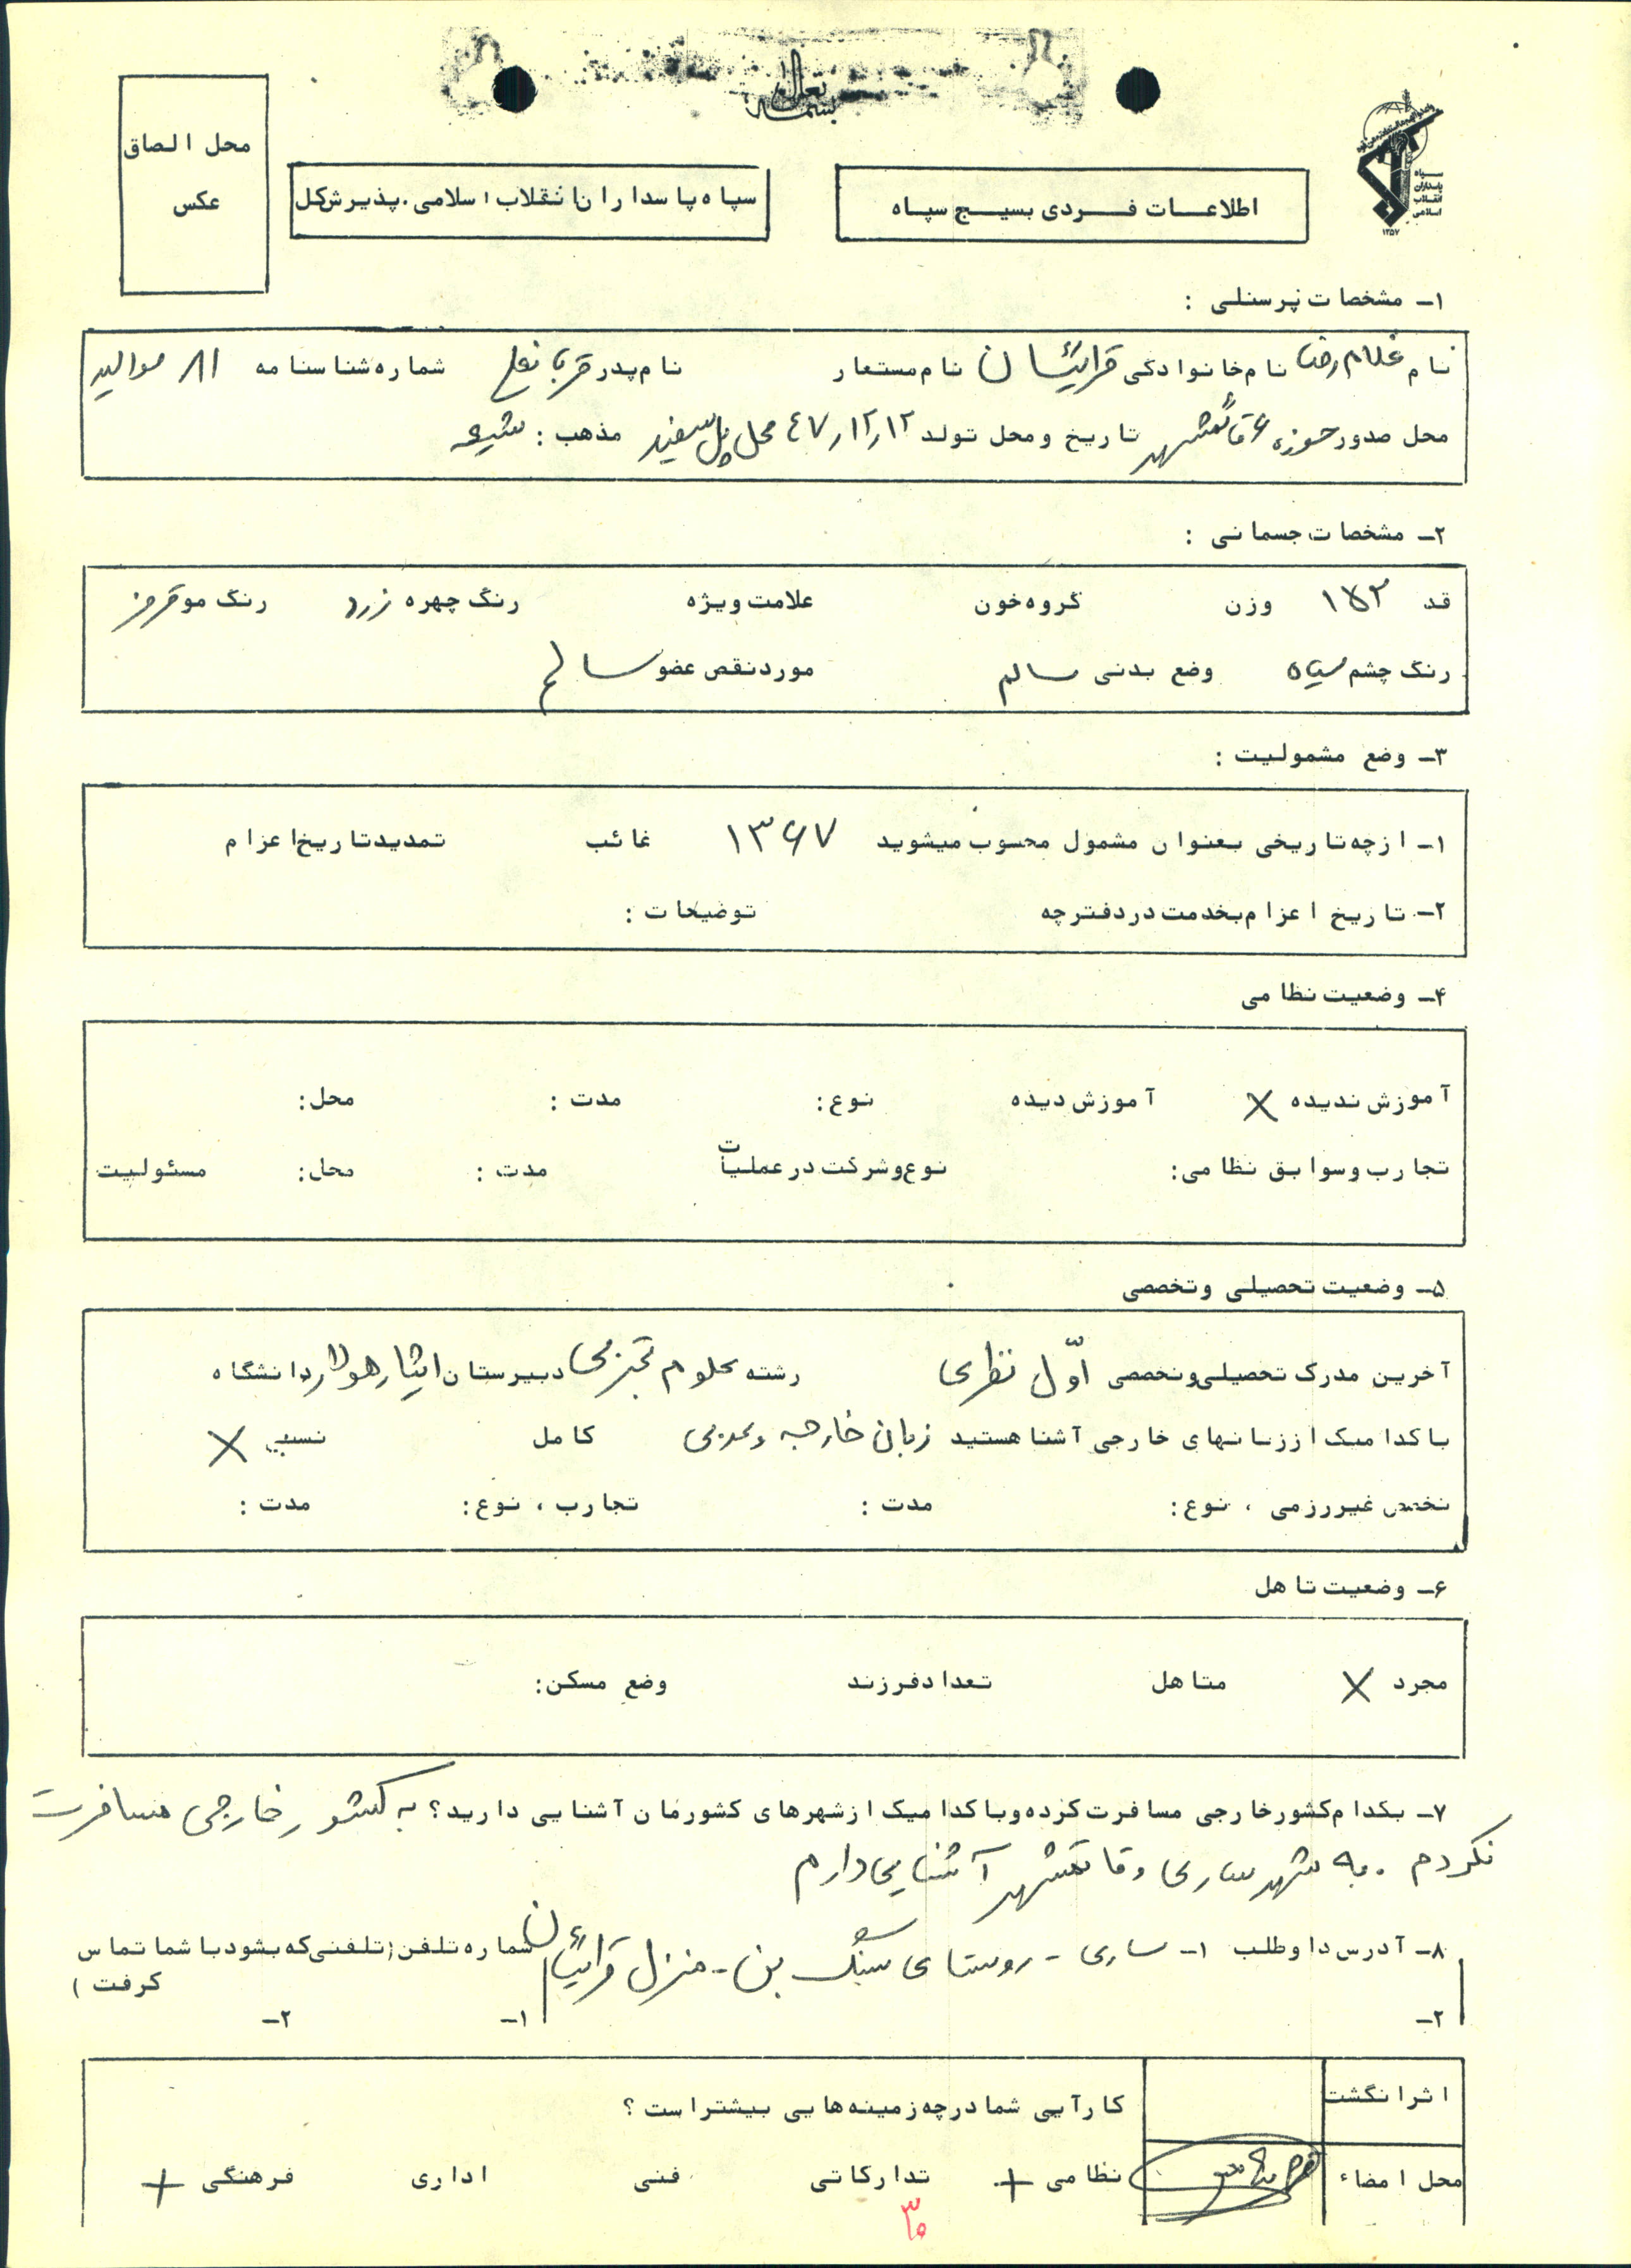 بسمه تعالی
سپاه پاسداران انقلاب اسلامی
۱۳۵۷
محل الصاق
عکس
اطلاعات فردی بسیج سپاه
سپاه پاسداران انقلاب اسلامی.پذیرش کل
۱- مشخصات پرسنلی :
نام غلامرضا نام خانوادگی قرائیان نام مستعار نام پدر قربانعلی شماره شناسنامه ۸۱ موالید
محل صدور حوزه ۶ قائمشهر تاریخ و محل تولد ۴۷٫۱۲٫۱۲ محل پل سفید مذهب : شیعه
۲- مشخصات جسمانی :
قد ۱۵۲ وزن گروه خون علامت ویژه رنگ چهره زرد رنگ مو قرمز
رنگ چشم سیاه وضع بدنی سالم مورد نقص عضو سالم
۳- وضع مشمولیت :
۱- از چه تاریخی بعنوان مشمول محسوب میشوید ۱۳۶۷ غائب تمدید تاریخ اعزام
۲- تاریخ اعزام بخدمت در دفترچه توضیحات :
۴- وضعیت نظامی
آموزش ندیده X آموزش دیده نوع : مدت : محل :
تجارب و سوابق نظامی : نوع و شرکت در عملیات مدت : محل : مسئولیت
۵- وضعیت تحصیلی و تخصصی
آخرین مدرک تحصیلی و تخصصی اوّل نظری رشته علوم تجربی دبیرستان ایثار دانشگاه
با کدامیک از زبانهای خارجی آشنا هستید زبان خارجه و عربی کامل نسبی X
تخصص غیررزمی ، نوع : مدت : تجارب ، نوع : مدت :
۶- وضعیت تاهل
مجرد X متاهل تعداد فرزند وضع مسکن :
۷- بکدام کشور خارجی مسافرت کرده و با کدامیک از شهرهای کشورمان آشنایی دارید؟ به کشور خارجی مسافرت
نکردم . به شهر ساری و قائمشهر آشنایی دارم
۸- آدرس داوطلب ۱- ساری - روستای سنگ بن - منزل قرائیان شماره تلفن (تلفنی که بشود با شما تماس
گرفت )
۲- ۱- ۲-
اثر انگشت
کارآیی شما در چه زمینه هایی بیشتر است ؟
محل امضاء نظامی + تدارکاتی فنی اداری فرهنگی +
۳۰